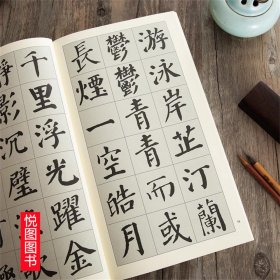 游泳岸芷汀蘭
鬱鬱青青而或
長煙一空皓月
千里浮光躍金
靜影沉璧
悦图图书